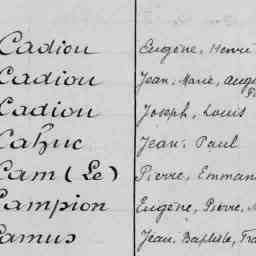 Cadiou Eugène, Henri
Cadiou Jean, Marie,
Cadiou Joseph, Louis
Cahuc Jean, Paul
Cam (Le) Pierre,
Campion Eugène, Pierre,
Camus Jean, Baptiste,